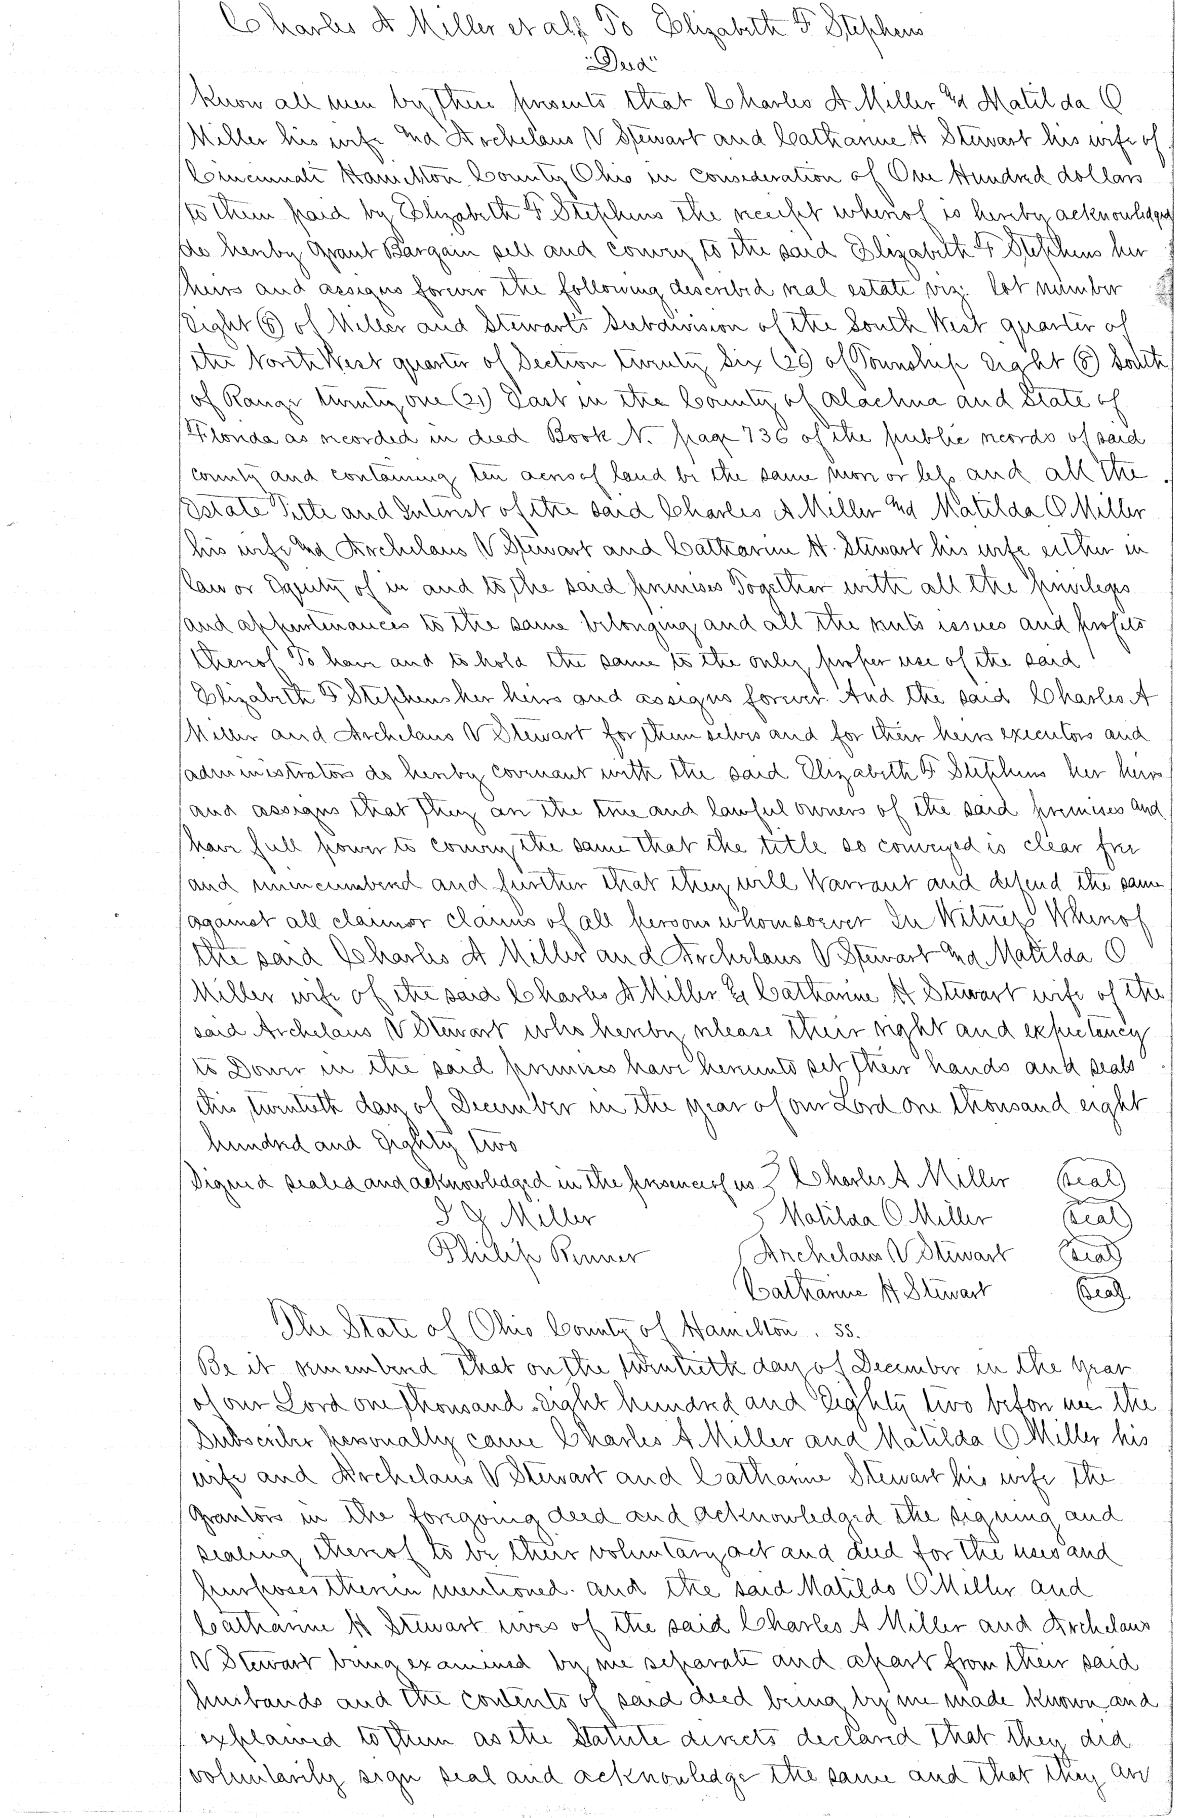 Charles A Miller et als To Elizabeth F Stephens
"Deed"
Know all men by these presents that Charles A Miller and Matilda O
Miller his wife and Archelaus V Stewart and Catharine H Stewart his wife of
Cincinnati Hamilton County Ohio in consideration of One Hundred dollars
to them paid by Elizabeth F Stephens the receipt whereof is hereby acknowledged
do hereby Grant Bargain sell and convey to the said Elizabeth F Stephens her
heirs and assigns forever the following described real estate viz: lot number
Eight (8) of Miller and Stewarts Subdivision of the South West quarter of
the North West quarter of Section twenty Six (26) of Township Eight (8) South
of Range twenty one (21) East in the County of Alachua and State of
Florida as recorded in deed Book N. page 736 of the public records of said
county and containing ten acres of land be the same more or less and all the
Estate Title and Interest of the said Charles A Miller and Matilda O Miller
his wife and Archelaus V Stewart and Catharine H. Stewart his wife either in
Law or Equity of in and to the said premises Together with all the privileges
and appurtenances to the same belonging and all the rents issues and profits
thereof To have and to hold the same to the only proper use of the said
Elizabeth F Stephens her heirs and assigns forever. And the said Charles A
Miller and Archelaus V Stewart for themselves and for their heirs executors and
administrators do hereby covenant with the said Elizabeth F Stephens her heirs
and assigns that they are the true and lawful owners of the said premises and
have full power to convey the same that the title so conveyed is clear free
and unincumbered and further that they will Warrant and defend the same
against all claim or claims of all persons whomsoever In Witness Whereof
the said Charles A Miller and Archelaus V Stewart and Matilda O
Miller wife of the said Charles A Miller & Catharine H Stewart wife of the
said Archelaus V Stewart who hereby release their right and expectancy
to Dower in the said premises have hereunto set their hands and seals
this twentieth day of December in the year of our Lord one thousand eight
hundred and Eighty two
Signed sealed and acknowledged in the presence of us } Charles A Miller (seal)
I G Miller } Matilda O Miller (seal)
Philip Renner Archelaus V Stewart (seal)
Catharine H Stewart (seal)
The State of Ohio County of Hamilton. ss.
Be it remembered that on the twentieth day of December in the year
of our Lord one thousand eight hundred and Eighty two before me the
Subscriber personally came Charles A Miller and Matilda O Miller his
wife and Archelaus V Stewart and Catharine Stewart his wife the
Grantors in the foregoing deed and acknowledged the signing and
sealing thereof to be their voluntary act and deed for the uses and
purposes therein mentioned. and the said Matilda O Miller and
Catharine H Stewart wives of the said Charles A Miller and Archelaus
V Stewart being examined by me separate and apart from their said
husbands and the contents of said deed being by me made known and
explained to them as the Statute directs declared that they did
voluntarily sign seal and acknowledge the same and that they are